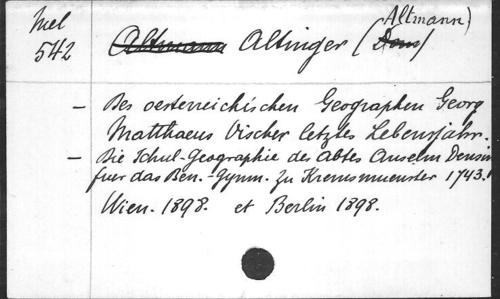 Mel
542
Altmann Altinger (Altmann)
(Dom)
- Des oesterreichischen Geographen Georg
Matthaeus Vischer letztes Lebensjahr.
- Die Schul-Geographie des Abtes Anselm Desing
fuer das Ben.-Gymn. zu Kremsmuenster 1743.
Wien. 1898. et Berlin 1898.